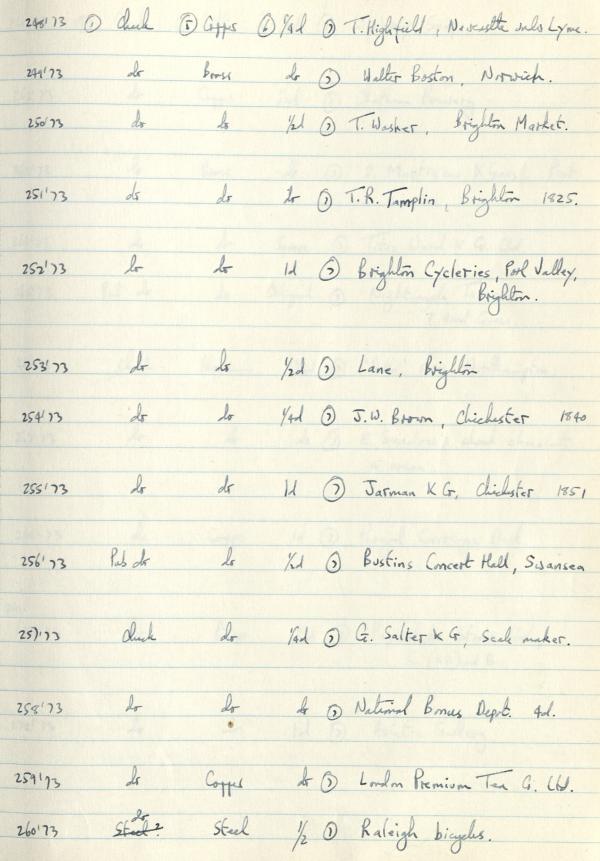 248'73 ① Check ⑤ Copper ⑥ 1/4d ⑦ T. Highfield, Newcastle under Lyme.
249'73 do Brass do ⑦ Walter Boston, Norwich.
250'73 do do 1/2d ⑦ T. Washer, Brighton Market.
251'73 do do do ⑦ T.R. Tamplin, Brighton 1825.
252'73 do do 1d ⑦ Brighton Cycleries, Pool Valley,
Brighton.
253'73 do do 1/2d ⑦ Lane, Brighton
254'73 do do 1/4d ⑦ J.W. Brown, Chichester 1840
255'73 do do 1d ⑦ Jarman K G, Chichester 1851
256'73 Pub do do 1/2d ⑦ Bustins Concert Hall, Swansea
257'73 Check do 1/4d ⑦ G. Salter K G, maker.
258'73 do do do ⑦ National Bonus Depot. 4d.
259'73 do Copper do ⑦ London Premium Tea C. Ltd.
do
260'73 Steel? Steel 1/2 ⑦ Raleigh bicycles.